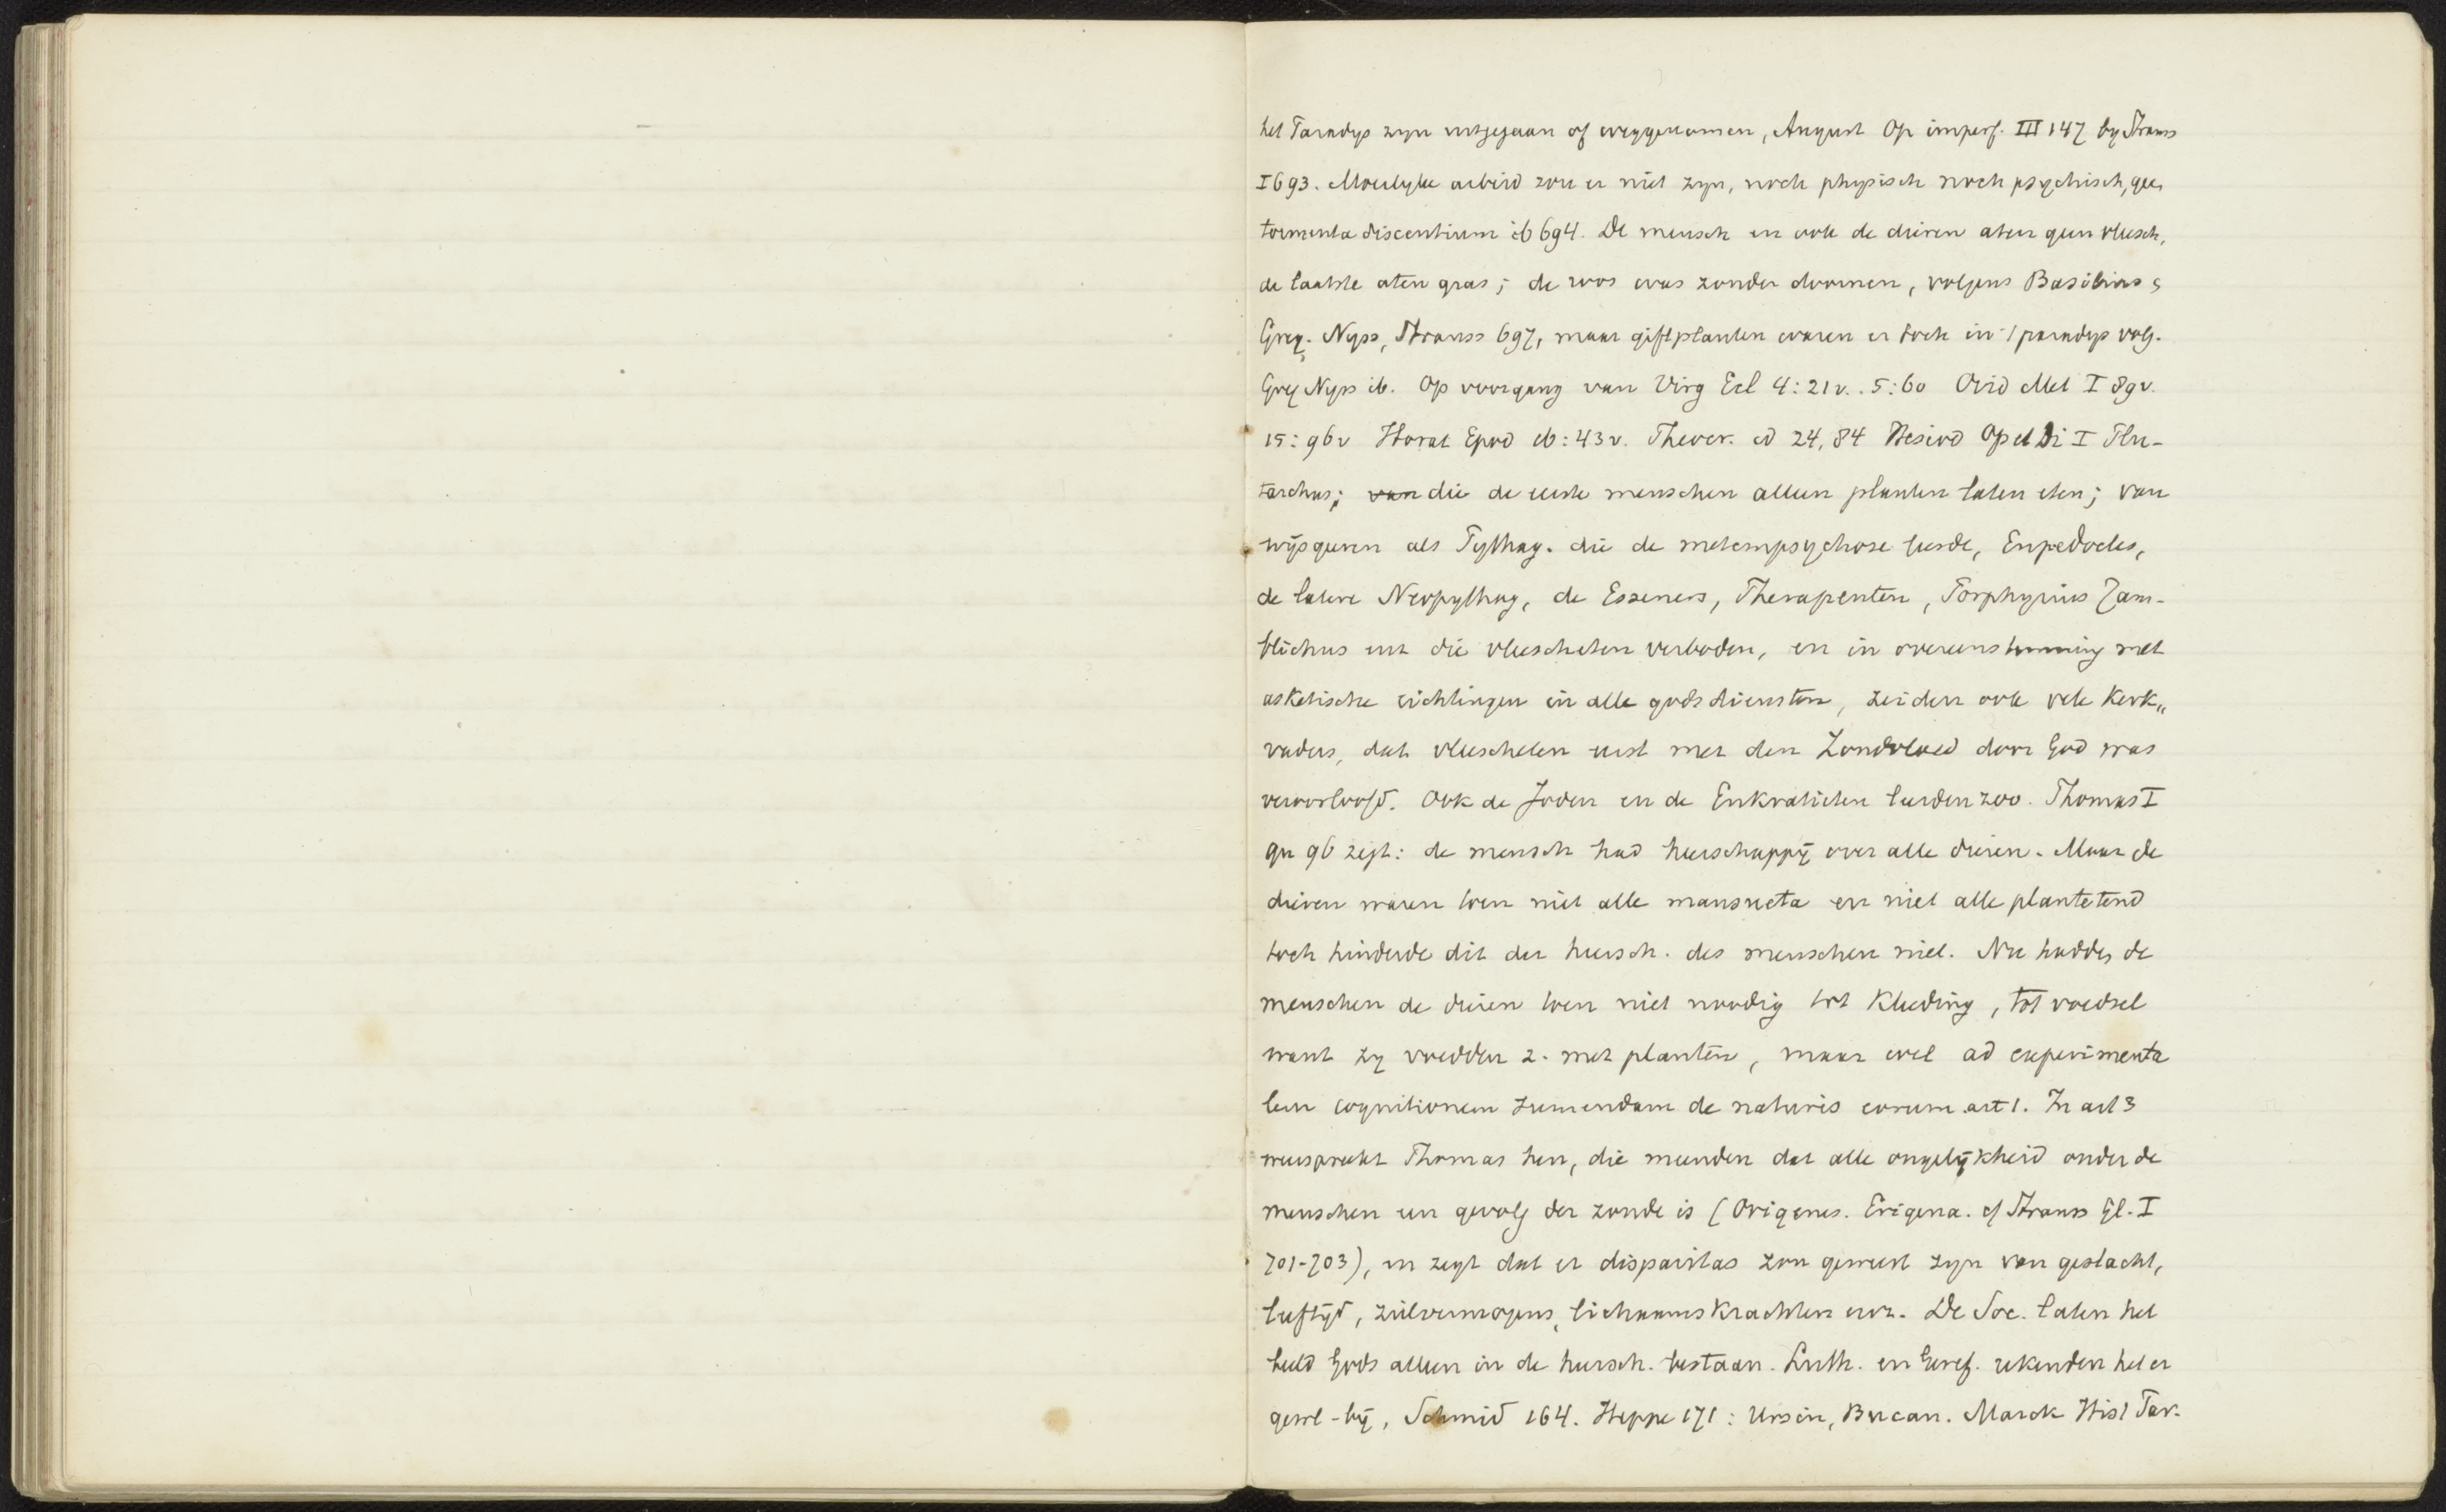 het Paradys zyn uitgegaan of weggenomen, August Op imperf. III 147 by Strauss
I 693. Moeilyke arbeid zou er niet zyn, noch physisch noch psychisch, geen
tormenta discentium ib 694. De mensch en ook de dieren aten geen vleesch,
de laatste aten gras; de roos was zonder doornen, volgens Basilius,
Greg. Nyss, Strauss 697, maar giftplanten waren er toch in 't paradys volg.
Greg Nyss ib. Op voorgang van Virg Ecl 4:21v. 5:60 Ovid Met I 89v.
15:96v Horat Epod 16:43v. Theocr. id 24,84 Hesiod Op et Di I Plu-
tarchus; van die de eerste menschen alleen planten laten eten; van
wijsgeeren als Pythag. die de metempsychose leerde, Empedocles,
de latere Neopythag, de Esseners, Therapeuten, Porphyrius Jam-
blichus enz die vleescheten verboden, en in overeenstemming met
asketische richtingen in alle godsdiensten, zeiden ook vele Kerk„
vaders, dat vleescheten eerst met den Zondvloed door God was
veroorloofd. Ook de Joden en de Enkratieten leerden zoo. Thomas I
qu 96 zegt: de mensch had heerschappij over alle dieren. Maar de
dieren waren toen niet alle mansueta en niet alle plantetend
toch hinderde dit der heersch. des menschen niet. Nu hadden de
menschen de dieren toen niet noodig tot Kleeding, tot voedsel
want zy voedden z. met planten, maar wel ad experimenta
lem cognitionem sumendam de naturis eorum art 1. In art 3
weerspreekt Thomas hen, die meenden dat alle ongelijkheid onder de
menschen een gevolg der zonde is (Origenes. Erigena. cf Strauss Gl. I
701-703), en zegt dat er disparitas zou geweest zyn van geslacht,
leeftijd, zielvermogens, lichaamskrachten enz. De Soc. laten het
beeld Gods alleen in de heersch. bestaan. Luth. en Geref. rekenden het er
gewl-bij, Schmid 164. Heppe 171: Ursin, Bucan. Marck Hist Par.